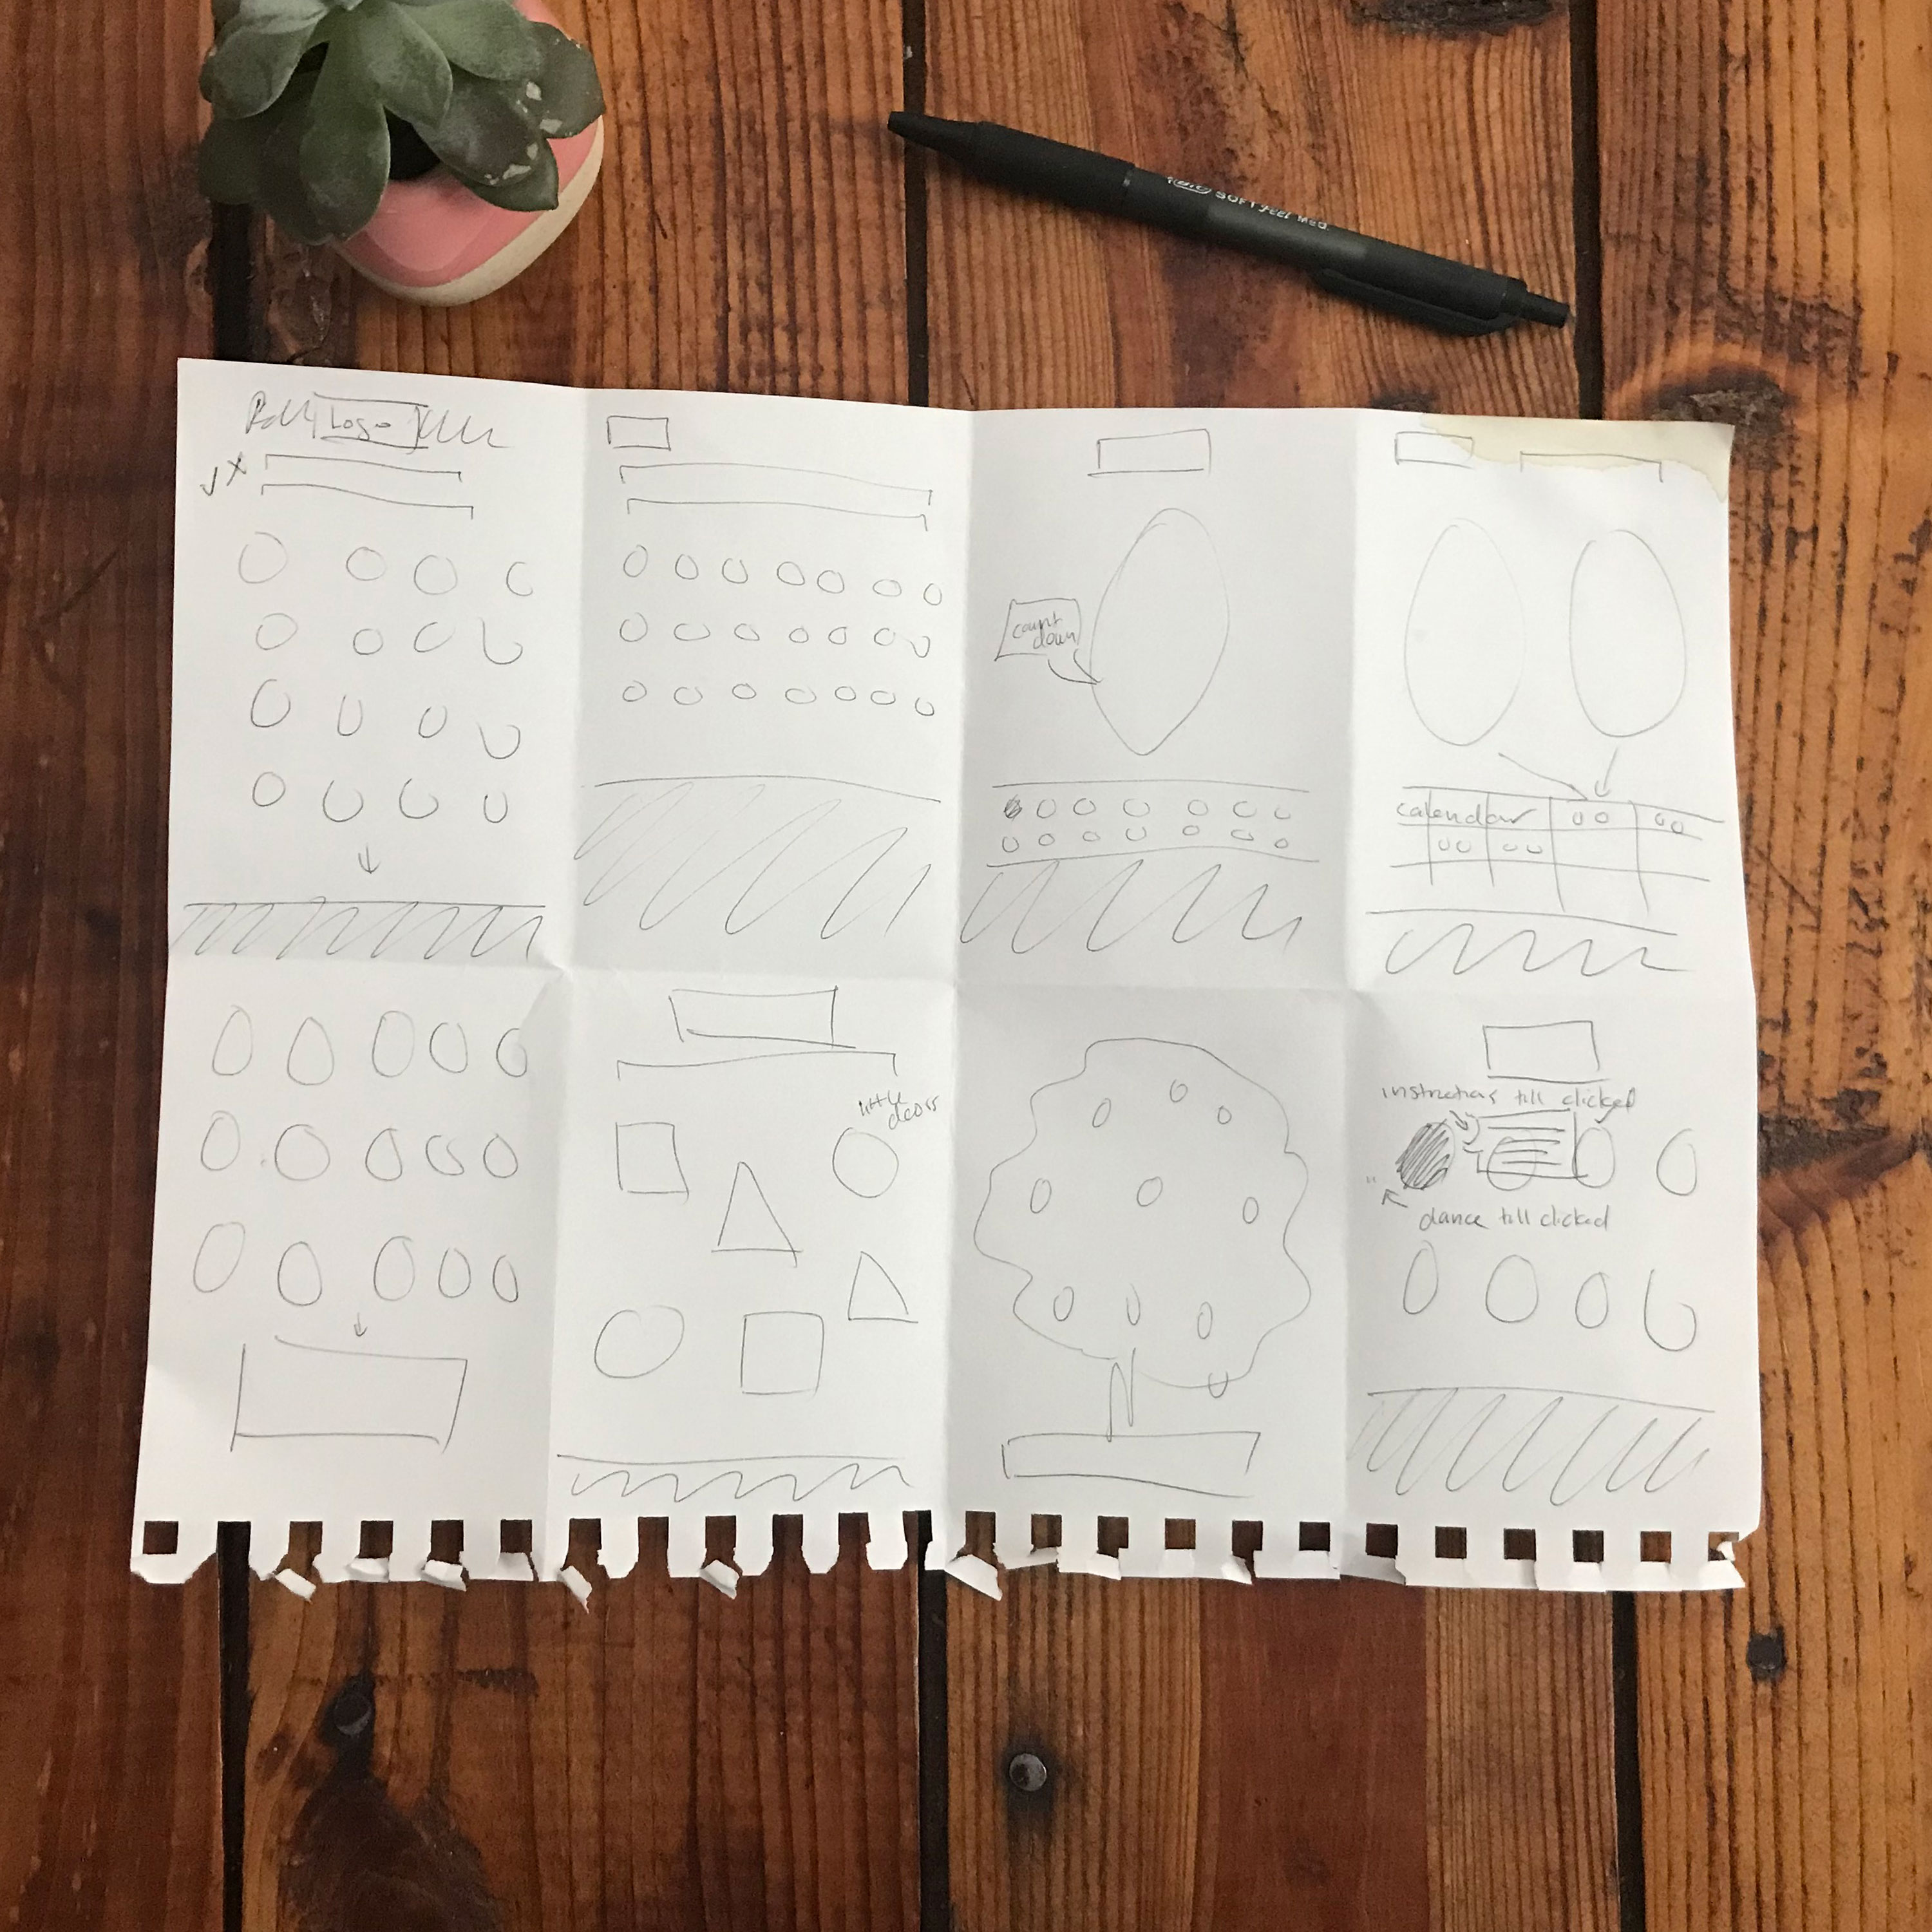 BIC SOFT feel Med.
Logo
count
down
calendar
little
doors
instructions till clicked
dance till clicked